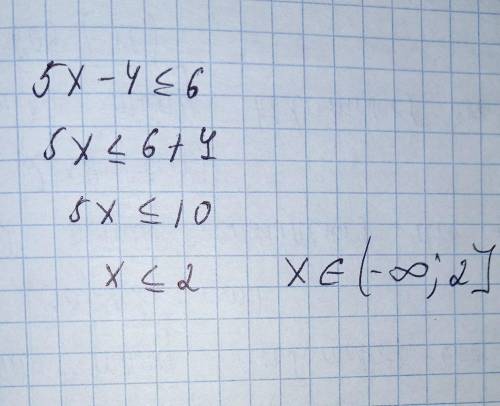 5x - 4 ≤ 6
5x ≤ 6 + 4
5x ≤ 10
x ≤ 2 x ∈ (-∞; 2]